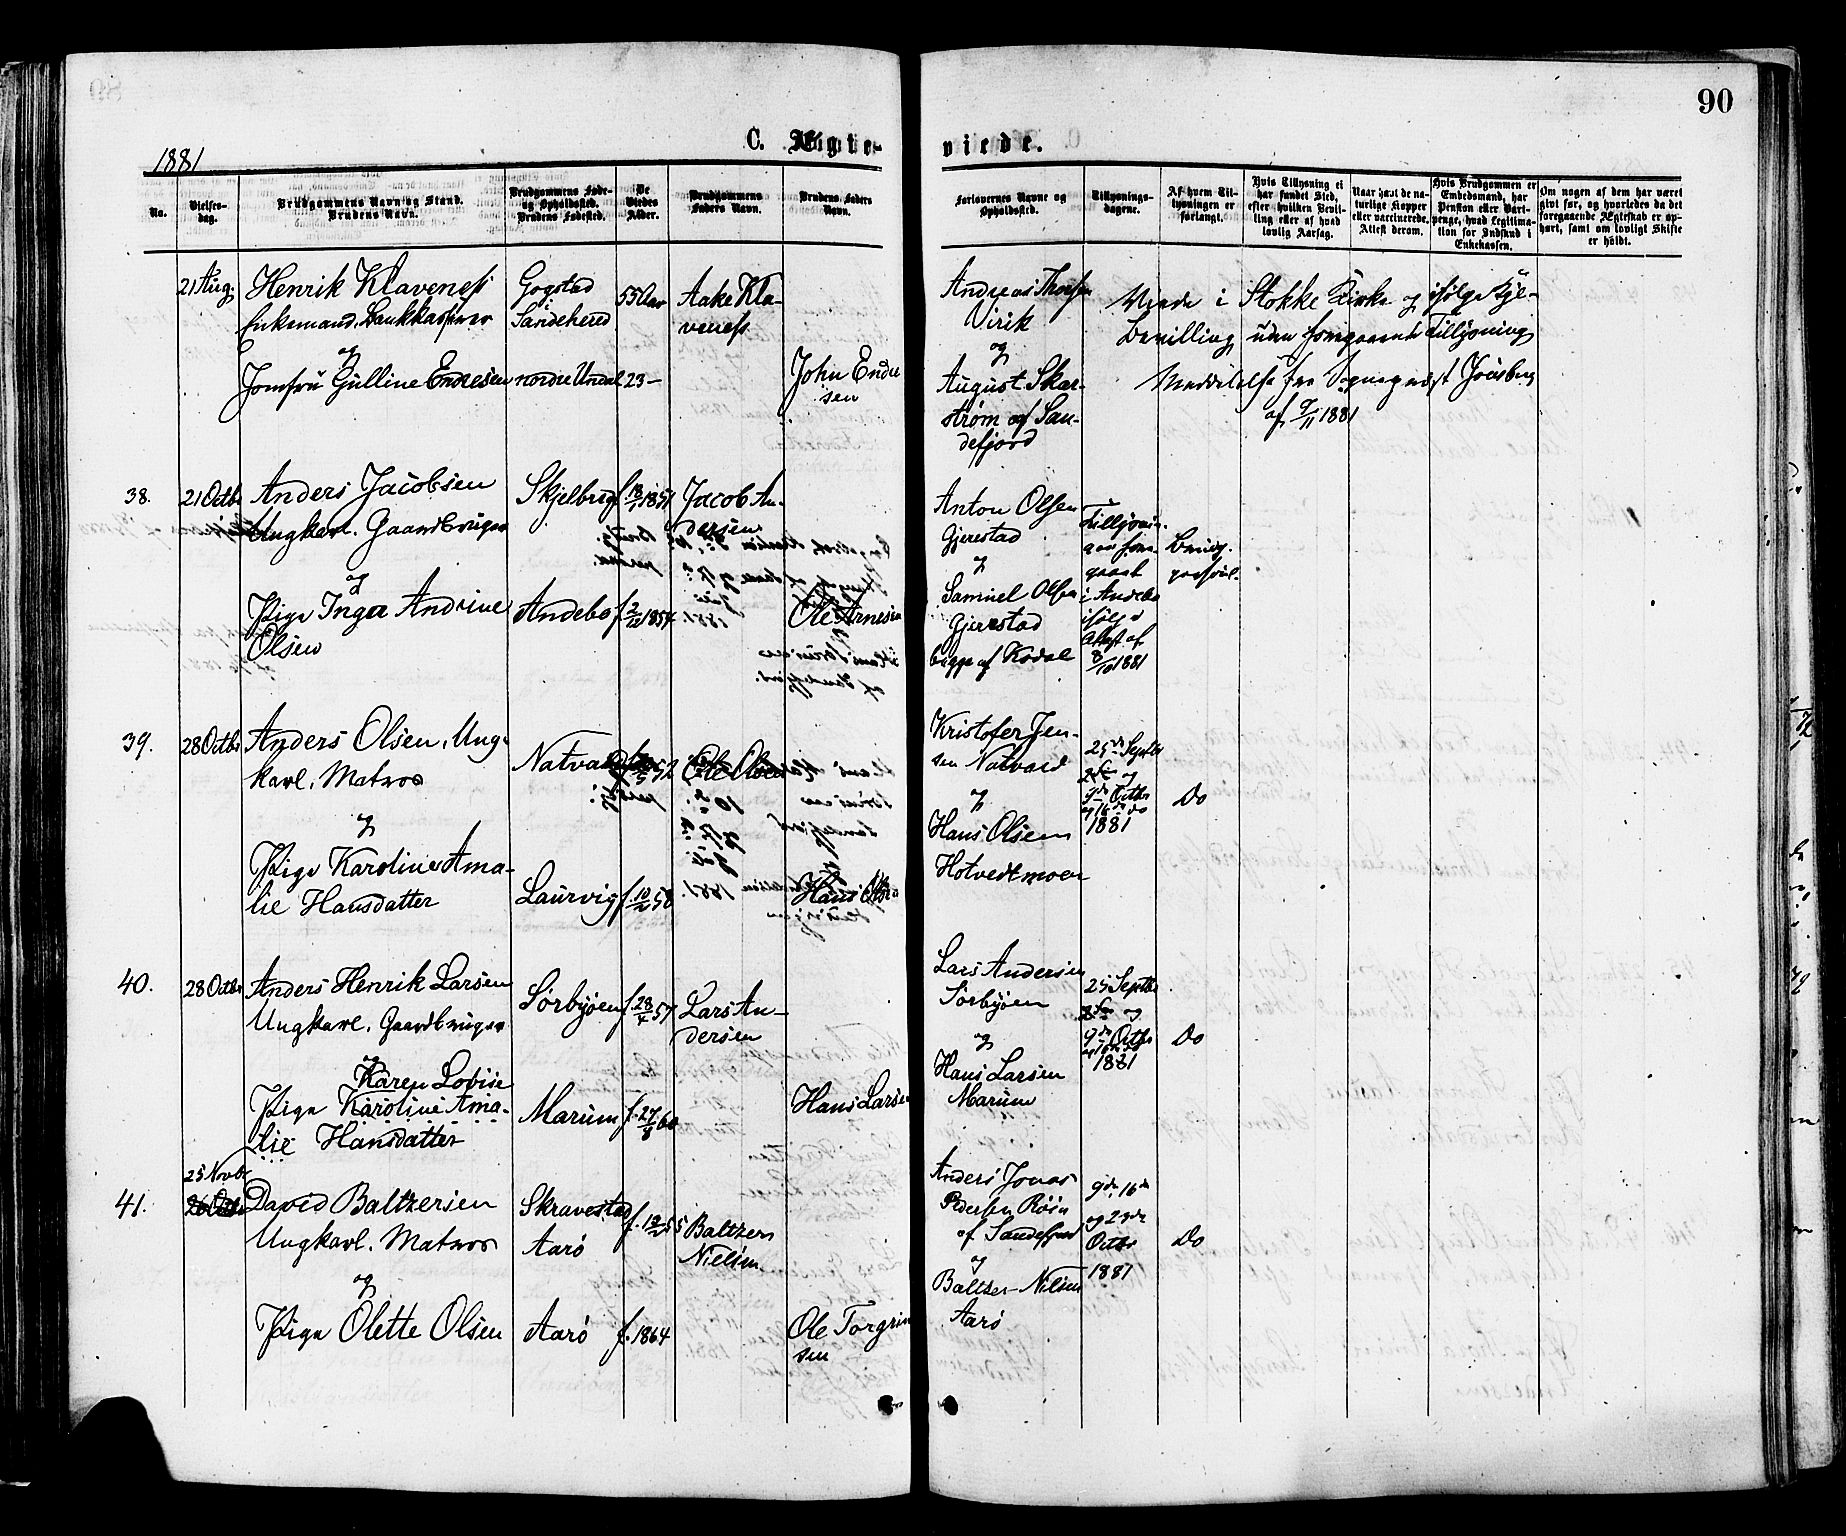 90
C. Ægte-
viede.
1881
No.
Vielses-
dag.
Brudgommens Navn og Stand.
Brudens Navn.
Brudgommens Føde-
og Opholdssted.
Brudens Fødested.
De
Viedes
Alder.
Brudgommens
Faders Navn.
Brudens Faders
Navn.
Forlovernes Navne og
Opholdssted.
Tillysnings-
dagene.
Af hvem Til-
lysningen er
forlangt.
Hvis Tillysning ei
har fundet Sted,
efter hvilken Bevil-
ling eller af hvad
lovlig Aarsag.
Naar havt de na-
turlige Kopper
eller vaccinerede.
Attest derom.
Hvis Brudgommen er
Embedsmand, har
Pension eller Vart-
penge, hvad Legitima-
tion for Indskud i
Enkekassen.
Om nogen af dem har været
givt før, og hvorledes da det
foregaaende Ægteskab er op-
hørt, samt om lovligt Skifte
er holdt.
21 Aug.
Henrik Klaveness
Enkemand, Bankkasserer
og
Jomfru Gulline Endresen
Gogstad
Sandeherred
nordre Undal
55 Aar
23 —
Aake Kla-
veness
John Endre
sen
Andreas Thorsen
Virik
og
August Skar-
strøm af San-
defjord
Viede i Stokke Kirke og ifølge Kgl-
Bevilling uden foregaaende Tillysning
Meddelelse fra Sogneprest
af 9/11 1881
38.
21 Octbr
Anders Jacobsen
Ungkarl. Gaardbruger
og
Pige Inga Andrine
Olsen
Skjelbreg
Andebo
f. 18/1 1851
f. 2/10 1854
Jacob An-
dersen
Ole Arnesen
Anton Olsen
Gjerestad
og
Samuel Olsen
Gjerestad
begge af Kodal
Tillysnin-
gen fore-
gaaet
i Andebo
ifølge
Attest af
8/10 1881
Brud-
39.
28 Octbr
Anders Olsen, Ung-
karl. Matros
og
Pige Karoline Ama-
lie Hansdatter
Natvall
Laurvig
52
f. 10/2 58
Ole Olsen
Hans
Kristofer Jen-
sen Natvad
og
Hans Olsen
Hotvedtmoen
25de Septbr
2den og
9de Octbr
og 16de do
1881
Do
40.
28 Octbr
Anders Henrik Larsen
Ungkarl. Gaardbruger
og
Karen Lovise
Pige Karoline Ama-
lie Hansdatter
Sørbyøen
Marum
f. 28/4 57
f. 27/8 60
Lars An-
dersen
Hans Larsen
Lars Andersen
Sørbyøen
og
Hans Larsen
Marum
25 Septbr
2den og
9de Octbr
og 16de do
1881
Do
41.
25 Novbr
26 Octbr
David Baltzersen
Ungkarl. Matros
og
Pige Olette Olsen
Skravestad
Aarø
Aarø
55
f. 1864
Baltzer
Nielsen
Ole Torgrim
sen
Anders Jonas
Pedersen Røin
af Sandefjord
og
Baltzer Nilsen
Aarø
9de, 16de
og 23de
Octbr
1881
Do